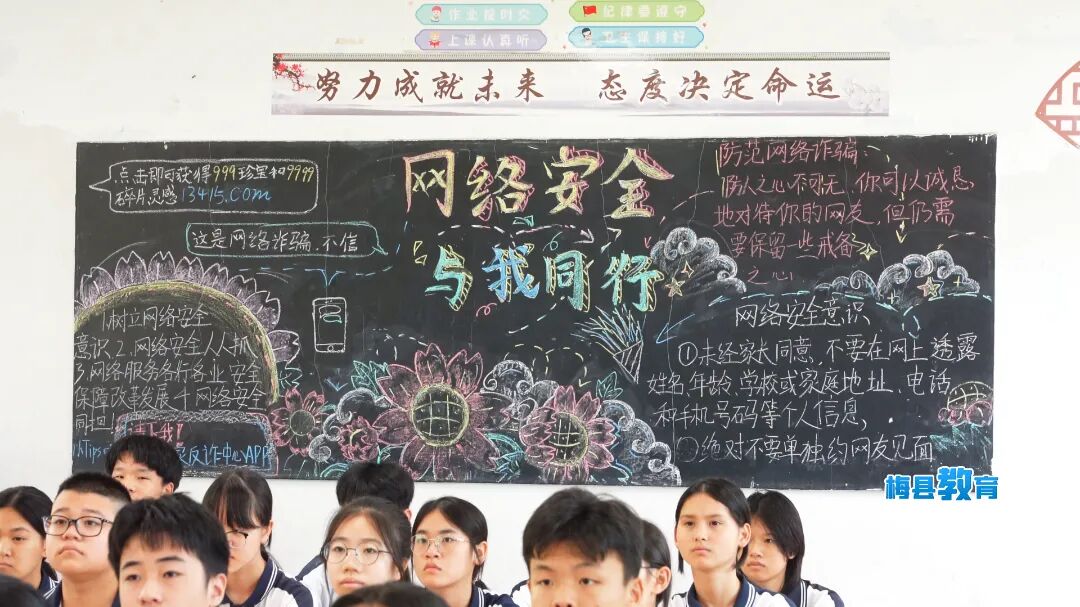 作业按时交
纪律要遵守
上课认真听
卫生保持好
努力成就未来 态度决定命运
点击即可获得999珍宝和9999
碎片灵感13415.com
这是网络诈骗、不信
网络安全
与我同行
防范网络诈骗:
防人之心不可无、你可以诚恳
地对待你的网友,但仍需
要保留一些戒备
之心
1.树立网络安全
意识2.网络安全人人抓
3.网络服务各行各业安全
保障改革发展4网络安全
同担
反诈中心APP
网络安全意识
①未经家长同意、不要在网上透露
姓名、年龄、学校或家庭地址、电话
和手机号码等个人信息,
②绝对不要单独约网友见面
梅县教育